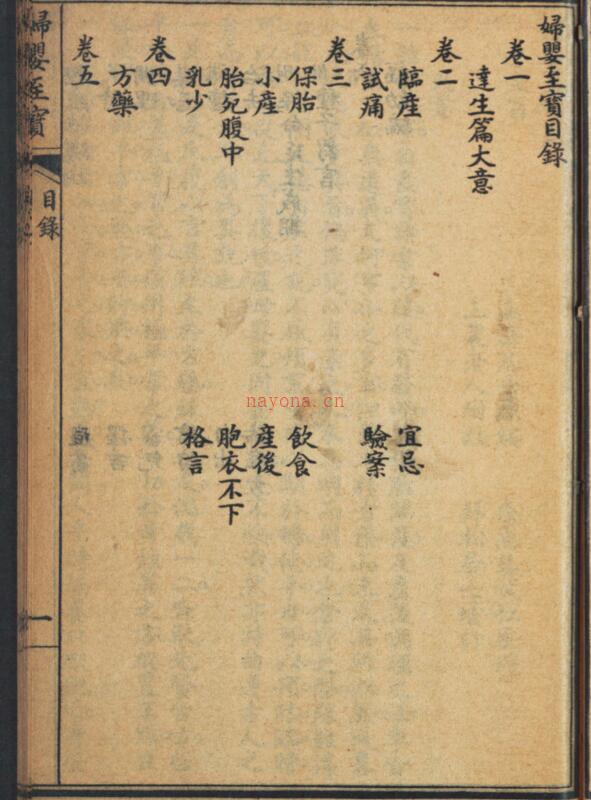 婦嬰至寶目錄
卷一
達生篇大意
卷二
臨產 宜忌
試痛 驗案
卷三
保胎 飲食
小產 產後
胎死腹中 胞衣不下
乳少 格言
卷四
方藥
卷五
婦嬰至寶
目錄
一
nayona.cn